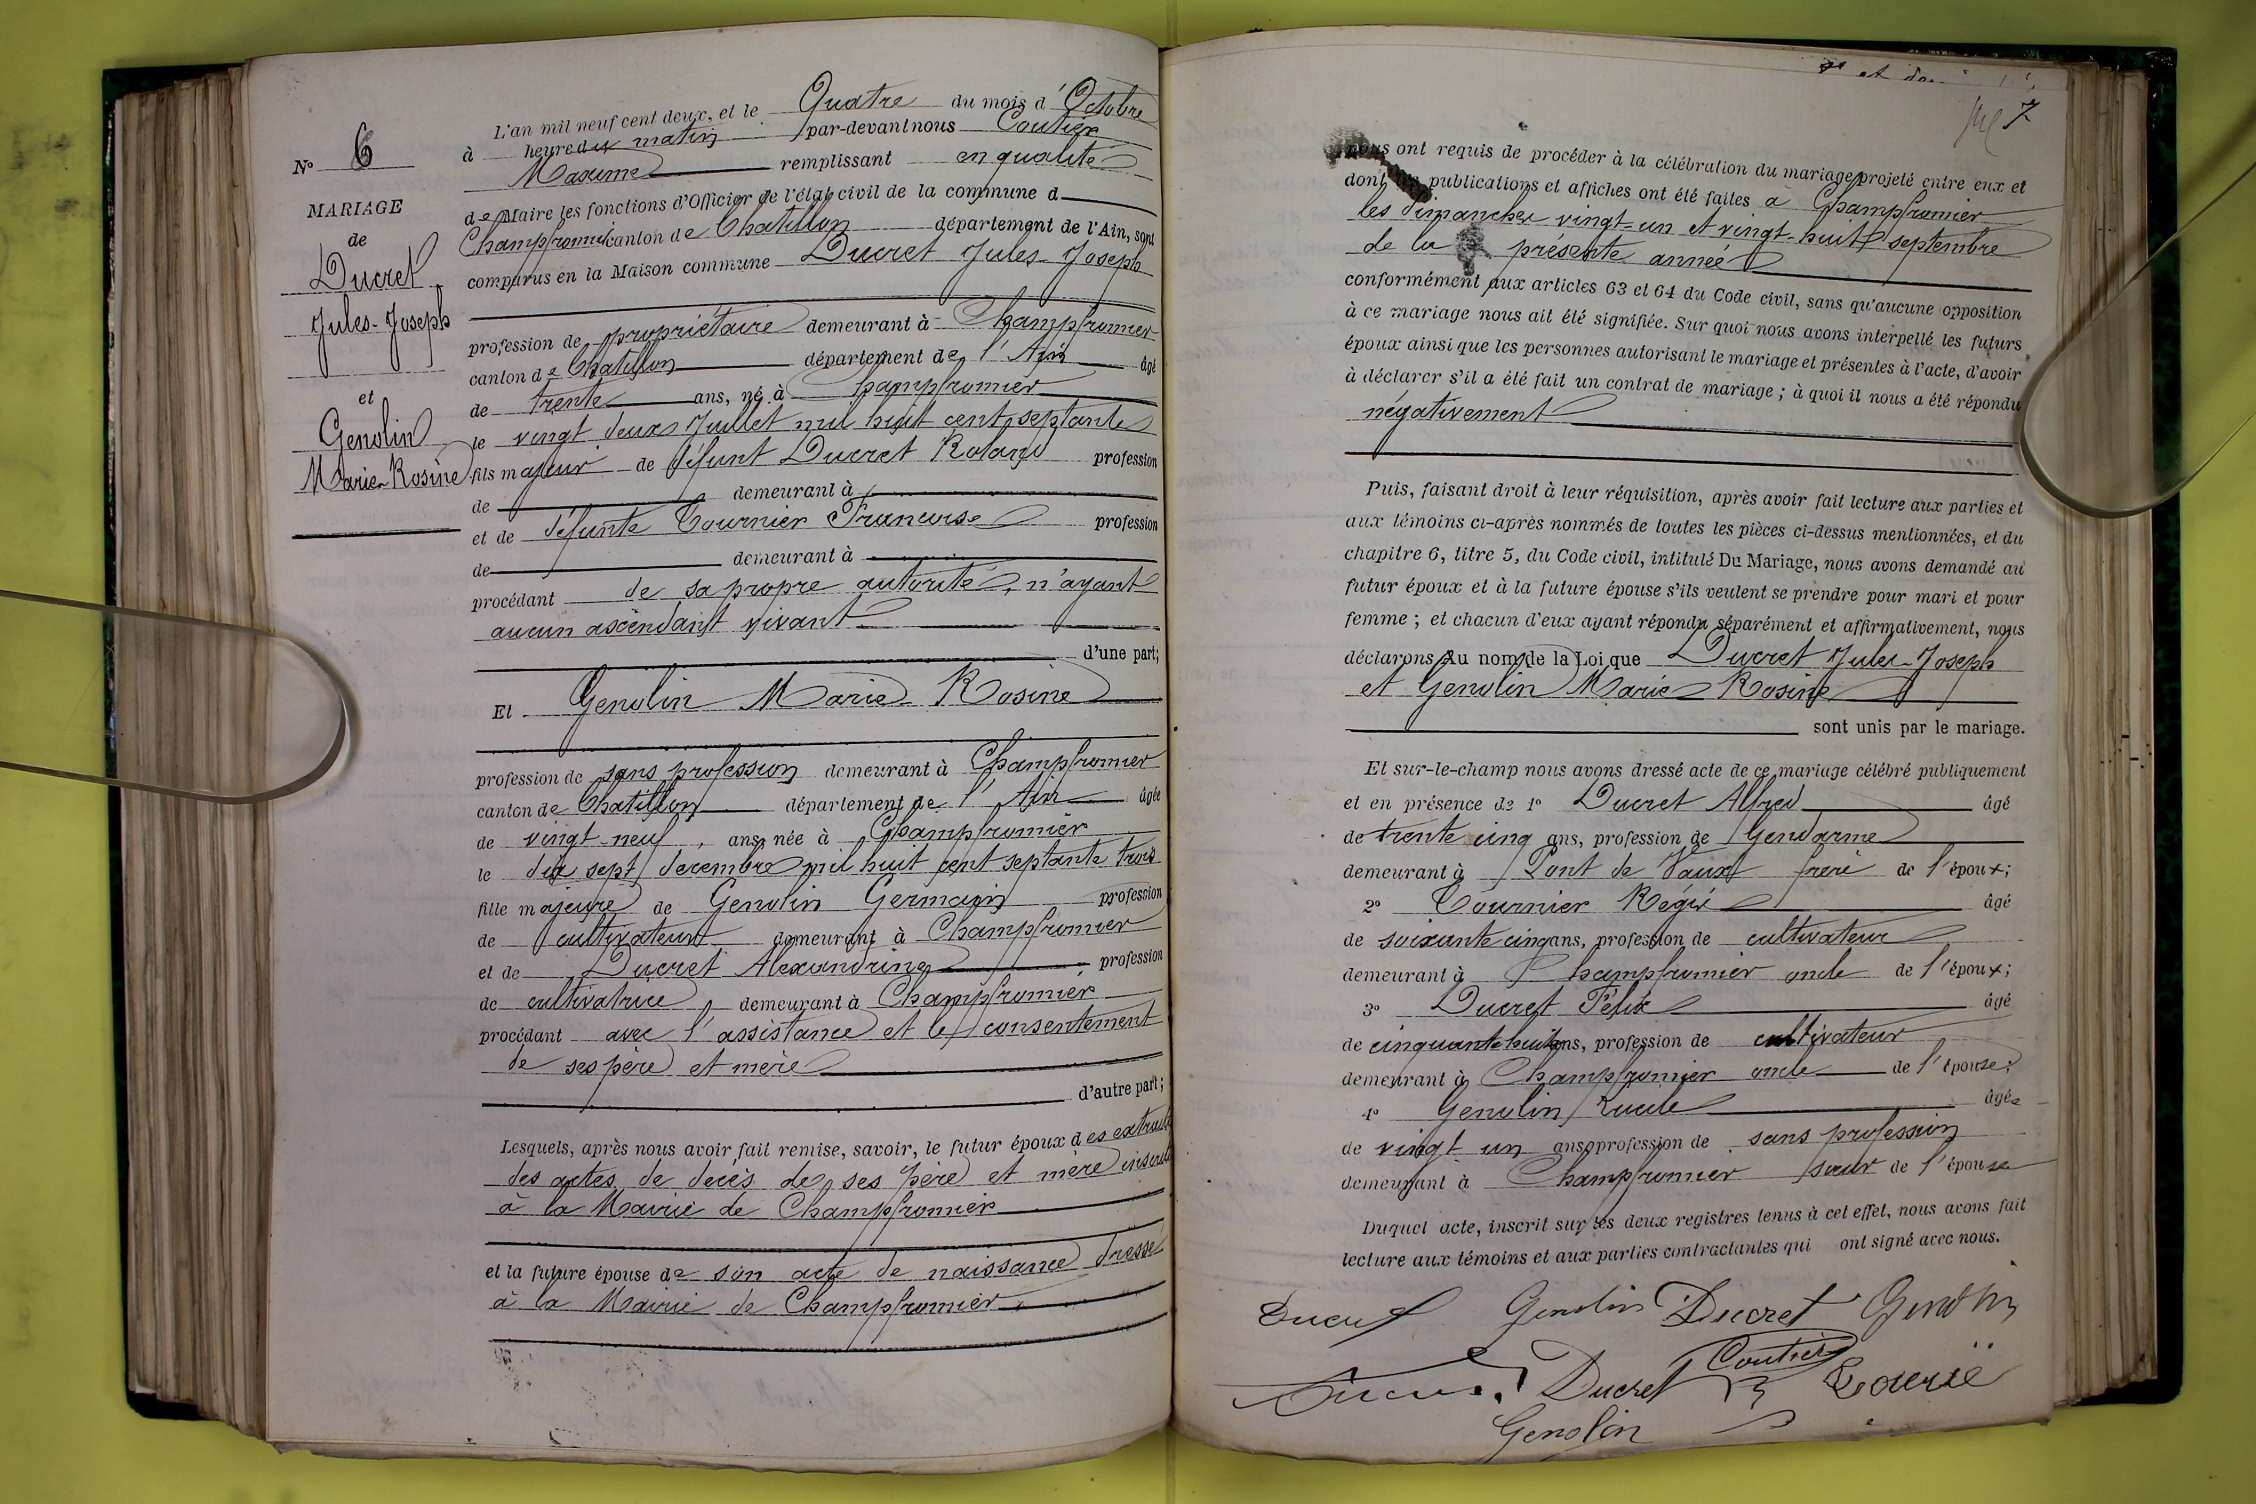 N° 6
MARIAGE
de
Ducret
Jules-Joseph
et
Genolin
Marie-Rosine
L'an mil neuf cent deux, et le Quatre du mois d'Octobre
à heure du matin par-devant nous Coutier
Maxime remplissant en qualité
de Maire les fonctions d'Officier de l'état civil de la commune d
Champfromier canton de Chatillon département de l'Ain, sont
comparus en la Maison commune Ducret Jules-Joseph
profession de propriétaire demeurant à Champfromier
canton de Chatillon département de l'Ain âgé
de trente ans, né à Champfromier
le vingt deux Juillet mil huit cent septante
fils majeur de défunt Ducret Roland profession
de demeurant à
et de défunte Tournier Francoise profession
de demeurant à
procédant de sa propre autorité, n'ayant
aucun ascendant vivant
d'une part;
Et Genolin Marie-Rosine
profession de sans profession demeurant à Champfromier
canton de Chatillon département de l'Ain âgée
de vingt-neuf, ans, née à Champfromier
le dix sept decembre mil huit cent septante trois
fille majeure de Genolin Germain profession
de cultivateur demeurant à Champfromier
et de Ducret Alexandrine profession
de cultivatrice demeurant à Champfromier
procédant avec l'assistance et le consentement
de ses père et mère
d'autre part;
Lesquels, après nous avoir fait remise, savoir, le futur époux des extraits
des actes de decès de ses père et mère inscrits
à la Mairie de Champfromier
et la future épouse de son acte de naissance dressé
à la Mairie de Champfromier
7
nous ont requis de procéder à la célébration du mariage projeté entre eux et
dont publications et affiches ont été faites à Champfromier
les dimanches vingt-un et vingt-huit septembre
de la présente année
conformément aux articles 63 et 64 du Code civil, sans qu'aucune opposition
à ce mariage nous ait été signifiée. Sur quoi nous avons interpellé les futurs
époux ainsi que les personnes autorisant le mariage et présentes à l'acte, d'avoir
à déclarer s'il a été fait un contrat de mariage; à quoi il nous a été répondu
négativement
Puis, faisant droit à leur réquisition, après avoir fait lecture aux parties et
aux témoins ci-après nommés de toutes les pièces ci-dessus mentionnées, et du
chapitre 6, titre 5, du Code civil, intitulé Du Mariage, nous avons demandé au
futur époux et à la future épouse s'ils veulent se prendre pour mari et pour
femme; et chacun d'eux ayant répondu séparément et affirmativement, nous
déclarons Au nom de la Loi que Ducret Jules-Joseph
et Genolin Marie-Rosine
sont unis par le mariage.
Et sur-le-champ nous avons dressé acte de ce mariage célébré publiquement
et en présence de 1° Ducret Alfred âgé
de trente cinq ans, profession de Gendarme
demeurant à Pont de Vaux frère de l'époux;
2° Tournier Régis âgé
de soixante cinq ans, profession de cultivateur
demeurant à Champfromier oncle de l'époux;
3° Ducret Félix âgé
de cinquante huit ans, profession de cultivateur
demeurant à Champfromier oncle de l'épouse;
4° Genolin âgée
de vingt un ans profession de sans profession
demeurant à Champfromier sœur de l'épouse
Duquel acte, inscrit sur les deux registres tenus à cet effet, nous avons fait
lecture aux témoins et aux parties contractantes qui ont signé avec nous.
Ducret Genolin Ducret Genolin
Ducret Coutier
Genolin